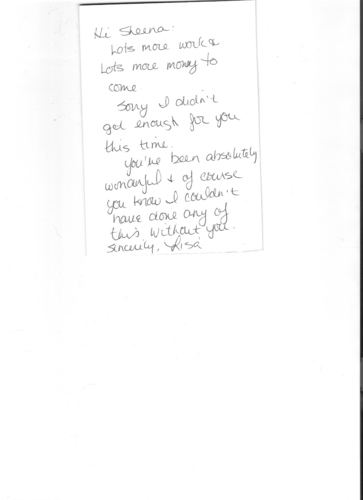 Hi Sheena:
Lots more work &
Lots more money to
come.
Sorry I didn't
get enough for you
this time.
You've been absolutely
wonderful & of course
you know I couldn't
have done any of
this without you.
Sincerely, Lisa